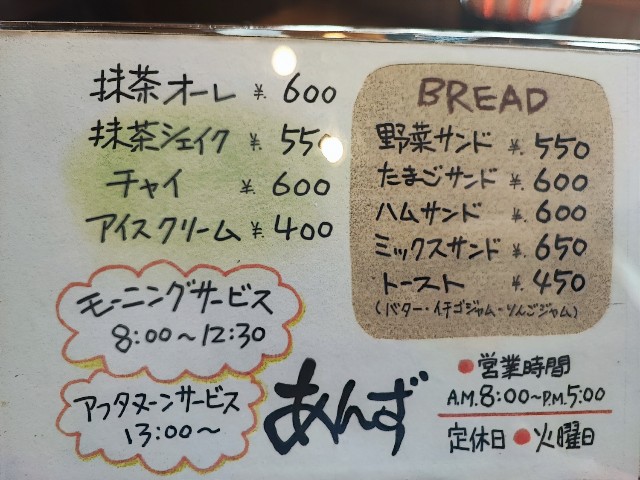 抹茶オーレ ¥.600
抹茶シェイク ¥.550
チャイ ¥.600
アイスクリーム ¥.400
モーニングサービス
8:00〜12:30
アフタヌーンサービス
13:00〜
BREAD
野菜サンド ¥.550
たまごサンド ¥.600
ハムサンド ¥.600
ミックスサンド ¥.650
トースト ¥.450
(バター・イチゴジャム・りんごジャム)
あんず
●営業時間
A.M.8:00〜P.M.5:00
定休日●火曜日